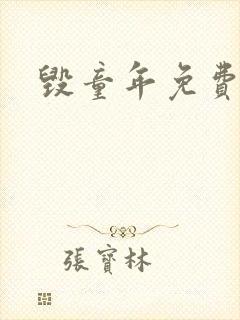 毁童年免費
張寶林